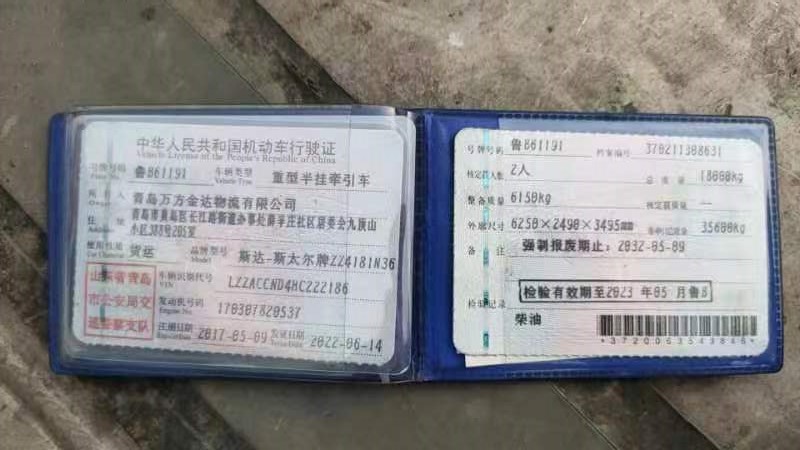 中华人民共和国机动车行驶证
Vehicle License of the People's Republic of China
号牌号码 鲁B61191 车辆类型 重型半挂牵引车
Plate No. Vehicle Type
所有人 青岛万方金达物流有限公司
Owner
住址 青岛市黄岛区长江路街道办事处薛辛庄社区居委会九顶山
小区388号205室
使用性质 货运 品牌型号 斯达-斯太尔牌ZZ4181N36
Use Character Model
山东省青岛
市公安局交
通警察支队
车辆识别代号 LZZACCND4HC222186
VIN
发动机号码 170307820537
Engine No.
注册日期 2017-05-09 发证日期 2022-06-14
号牌号码 鲁B61191 档案编号 370211308631
核定载人数 2人 总质量 18000kg
整备质量 6150kg 核定载质量 --
外廓尺寸 6250×2490×3495mm 35600kg
备注 强制报废期止：2032-05-09
检验记录 检验有效期至2023年05月鲁B
柴油